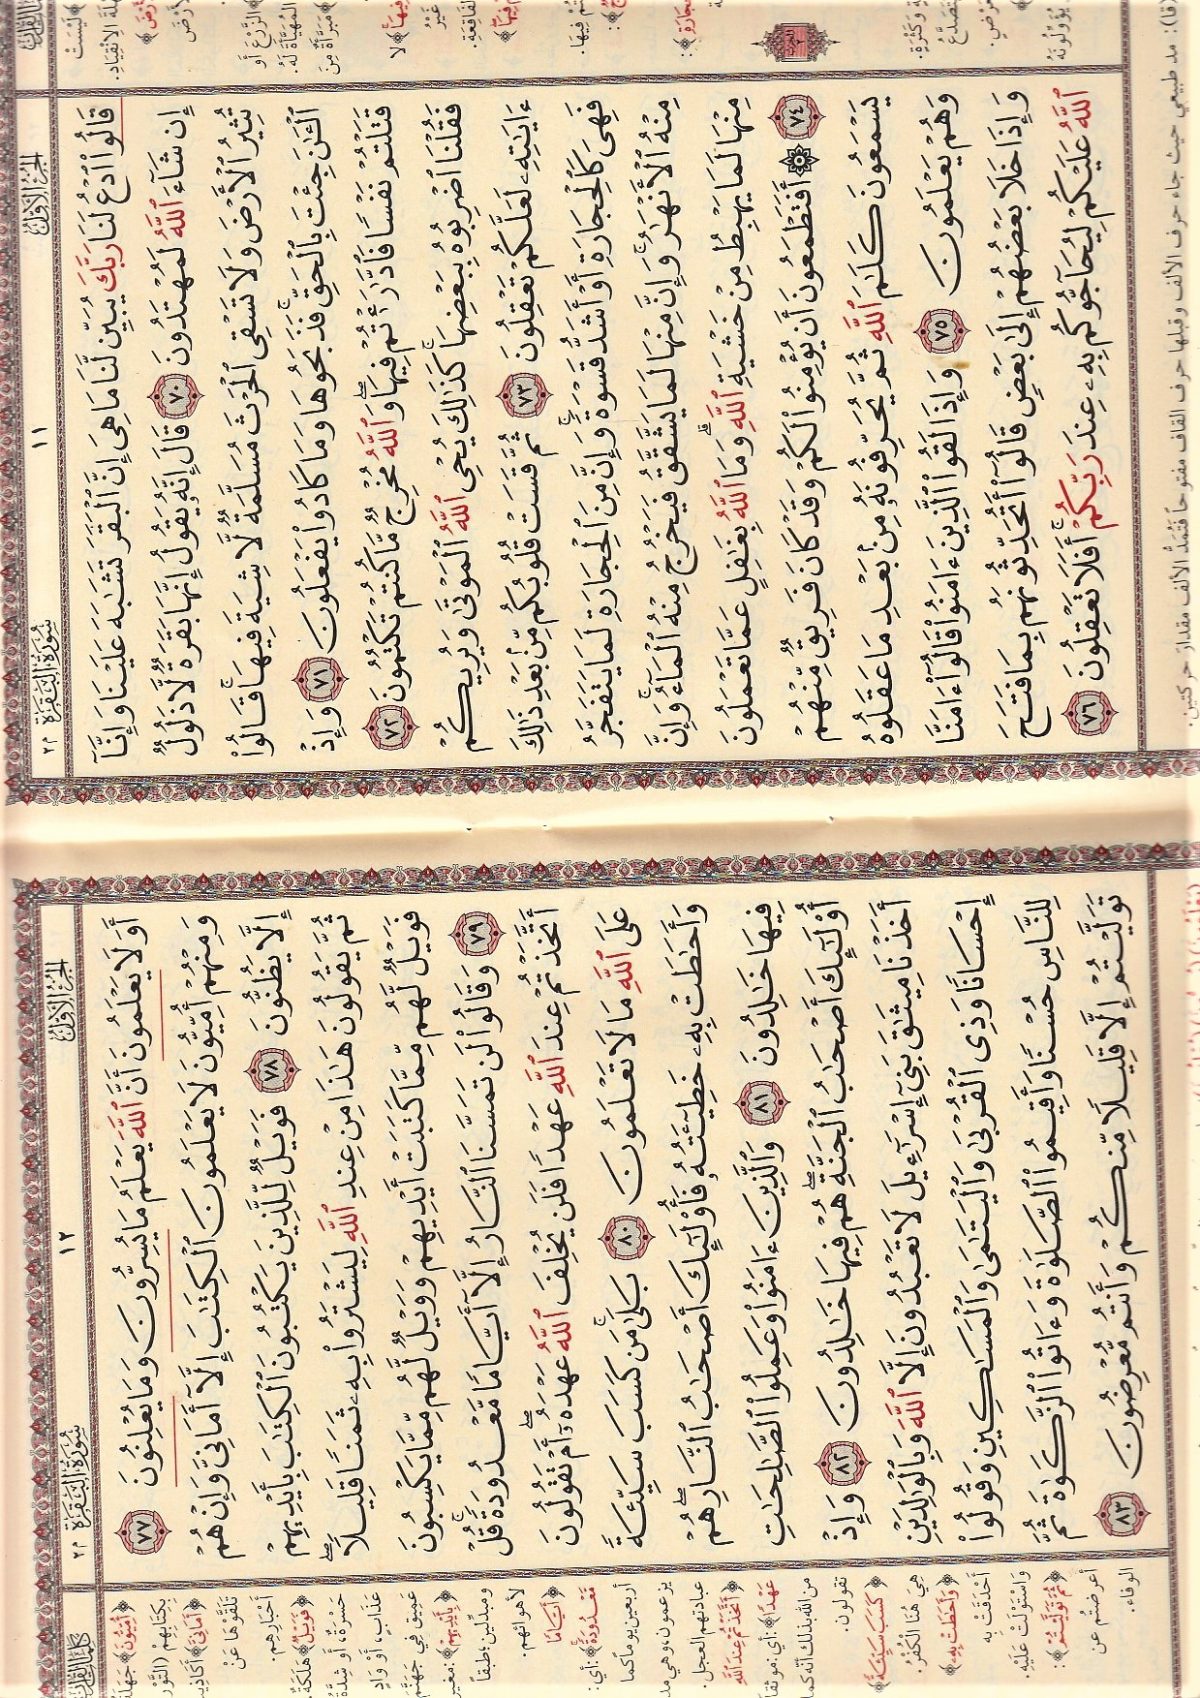 الجزء الأول
١١
سورة البقرة
٢
قَالُوا۟ ٱدْعُ لَنَا رَبَّكَ يُبَيِّن لَّنَا مَا هِىَ إِنَّ ٱلْبَقَرَ تَشَـٰبَهَ عَلَيْنَا وَإِنَّآ
إِن شَآءَ ٱللَّهُ لَمُهْتَدُونَ ٧٠ قَالَ إِنَّهُۥ يَقُولُ إِنَّهَا بَقَرَةٌ لَّا ذَلُولٌ
تُثِيرُ ٱلْأَرْضَ وَلَا تَسْقِى ٱلْحَرْثَ مُسَلَّمَةٌ لَّا شِيَةَ فِيهَا ۚ قَالُوا۟
ٱلْـَٔـٰنَ جِئْتَ بِٱلْحَقِّ ۚ فَذَبَحُوهَا وَمَا كَادُوا۟ يَفْعَلُونَ ٧١ وَإِذْ
قَتَلْتُمْ نَفْسًا فَٱدَّٰرَْٰٔتُمْ فِيهَا ۖ وَٱللَّهُ مُخْرِجٌ مَّا كُنتُمْ تَكْتُمُونَ ٧٢
فَقُلْنَا ٱضْرِبُوهُ بِبَعْضِهَا ۚ كَذَٰلِكَ يُحْىِ ٱللَّهُ ٱلْمَوْتَىٰ وَيُرِيكُمْ
ءَايَـٰتِهِۦ لَعَلَّكُمْ تَعْقِلُونَ ٧٣ ثُمَّ قَسَتْ قُلُوبُكُم مِّنۢ بَعْدِ ذَٰلِكَ
فَهِىَ كَٱلْحِجَارَةِ أَوْ أَشَدُّ قَسْوَةً ۚ وَإِنَّ مِنَ ٱلْحِجَارَةِ لَمَا يَتَفَجَّرُ
مِنْهُ ٱلْأَنْهَـٰرُ ۚ وَإِنَّ مِنْهَا لَمَا يَشَّقَّقُ فَيَخْرُجُ مِنْهُ ٱلْمَآءُ ۚ وَإِنَّ
مِنْهَا لَمَا يَهْبِطُ مِنْ خَشْيَةِ ٱللَّهِ ۗ وَمَا ٱللَّهُ بِغَـٰفِلٍ عَمَّا تَعْمَلُونَ
٧٤ ۞ أَفَتَطْمَعُونَ أَن يُؤْمِنُوا۟ لَكُمْ وَقَدْ كَانَ فَرِيقٌ مِّنْهُمْ
يَسْمَعُونَ كَلَـٰمَ ٱللَّهِ ثُمَّ يُحَرِّفُونَهُۥ مِنۢ بَعْدِ مَا عَقَلُوهُ
وَهُمْ يَعْلَمُونَ ٧٥ وَإِذَا لَقُوا۟ ٱلَّذِينَ ءَامَنُوا۟ قَالُوٓا۟ ءَامَنَّا
وَإِذَا خَلَا بَعْضُهُمْ إِلَىٰ بَعْضٍ قَالُوٓا۟ أَتُحَدِّثُونَهُم بِمَا فَتَحَ
ٱللَّهُ عَلَيْكُمْ لِيُحَآجُّوكُم بِهِۦ عِندَ رَبِّكُمْ ۚ أَفَلَا تَعْقِلُونَ ٧٦
مد طبيعي حيث جاء حرف الألف وقبلها حرف القاف مفتوحاً فتمد الألف مقدار حركتين.
الجزء الأول
١٢
سورة البقرة
٢
أَوَلَا يَعْلَمُونَ أَنَّ ٱللَّهَ يَعْلَمُ مَا يُسِرُّونَ وَمَا يُعْلِنُونَ ٧٧
وَمِنْهُمْ أُمِّيُّونَ لَا يَعْلَمُونَ ٱلْكِتَـٰبَ إِلَّآ أَمَانِىَّ وَإِنْ هُمْ
إِلَّا يَظُنُّونَ ٧٨ فَوَيْلٌ لِّلَّذِينَ يَكْتُبُونَ ٱلْكِتَـٰبَ بِأَيْدِيهِمْ
ثُمَّ يَقُولُونَ هَـٰذَا مِنْ عِندِ ٱللَّهِ لِيَشْتَرُوا۟ بِهِۦ ثَمَنًا قَلِيلًا ۖ
فَوَيْلٌ لَّهُم مِّمَّا كَتَبَتْ أَيْدِيهِمْ وَوَيْلٌ لَّهُم مِّمَّا يَكْسِبُونَ
٧٩ وَقَالُوا۟ لَن تَمَسَّنَا ٱلنَّارُ إِلَّآ أَيَّامًا مَّعْدُودَةً ۚ قُلْ
أَتَّخَذْتُمْ عِندَ ٱللَّهِ عَهْدًا فَلَن يُخْلِفَ ٱللَّهُ عَهْدَهُۥٓ ۖ أَمْ تَقُولُونَ
عَلَى ٱللَّهِ مَا لَا تَعْلَمُونَ ٨٠ بَلَىٰ ۚ مَن كَسَبَ سَيِّئَةً
وَأَحَـٰطَتْ بِهِۦ خَطِيٓـَٔتُهُۥ فَأُو۟لَـٰٓئِكَ أَصْحَـٰبُ ٱلنَّارِ ۖ هُمْ
فِيهَا خَـٰلِدُونَ ٨١ وَٱلَّذِينَ ءَامَنُوا۟ وَعَمِلُوا۟ ٱلصَّـٰلِحَـٰتِ
أُو۟لَـٰٓئِكَ أَصْحَـٰبُ ٱلْجَنَّةِ ۖ هُمْ فِيهَا خَـٰلِدُونَ ٨٢ وَإِذْ
أَخَذْنَا مِيثَـٰقَ بَنِىٓ إِسْرَٰٓءِيلَ لَا تَعْبُدُونَ إِلَّا ٱللَّهَ وَبِٱلْوَٰلِدَيْنِ
إِحْسَانًا وَذِى ٱلْقُرْبَىٰ وَٱلْيَتَـٰمَىٰ وَٱلْمَسَـٰكِينِ وَقُولُوا۟
لِلنَّاسِ حُسْنًا وَأَقِيمُوا۟ ٱلصَّلَوٰةَ وَءَاتُوا۟ ٱلزَّكَوٰةَ ثُمَّ
تَوَلَّيْتُمْ إِلَّا قَلِيلًا مِّنكُمْ وَأَنتُم مُّعْرِضُونَ ٨٣
﴿أُمِّيُّونَ﴾ جهلة
بكتابهم
﴿أَمَانِيَّ﴾
تلقوها عن
أحبارهم.
﴿فَوَيْلٌ﴾ هلكة
حسرة، أو شدة
عذاب، أو واد
عميق في جهنم
﴿بِأَيْدِيهِمْ﴾:
ومبدلين: طبقاً
لأهوائهم.
﴿أَيَّامًا
مَعْدُودَةً﴾ أي:
أربعين يوماً كما
يزعمون، وهي
عبادتهم العجل.
﴿أَتَّخَذْتُمْ عِندَ اللَّهِ
عَهْدًا﴾ أي:
من الله بذلك أنه كما
تقولون.
﴿كَسَبَ سَيِّئَةً﴾
هي هنا الكفر.
﴿وَأَحَاطَتْ بِهِ﴾
أحدقت به
واستولت عليه.
﴿ثُمَّ تَوَلَّيْتُمْ﴾:
أعرضتم عن
الوفاء.